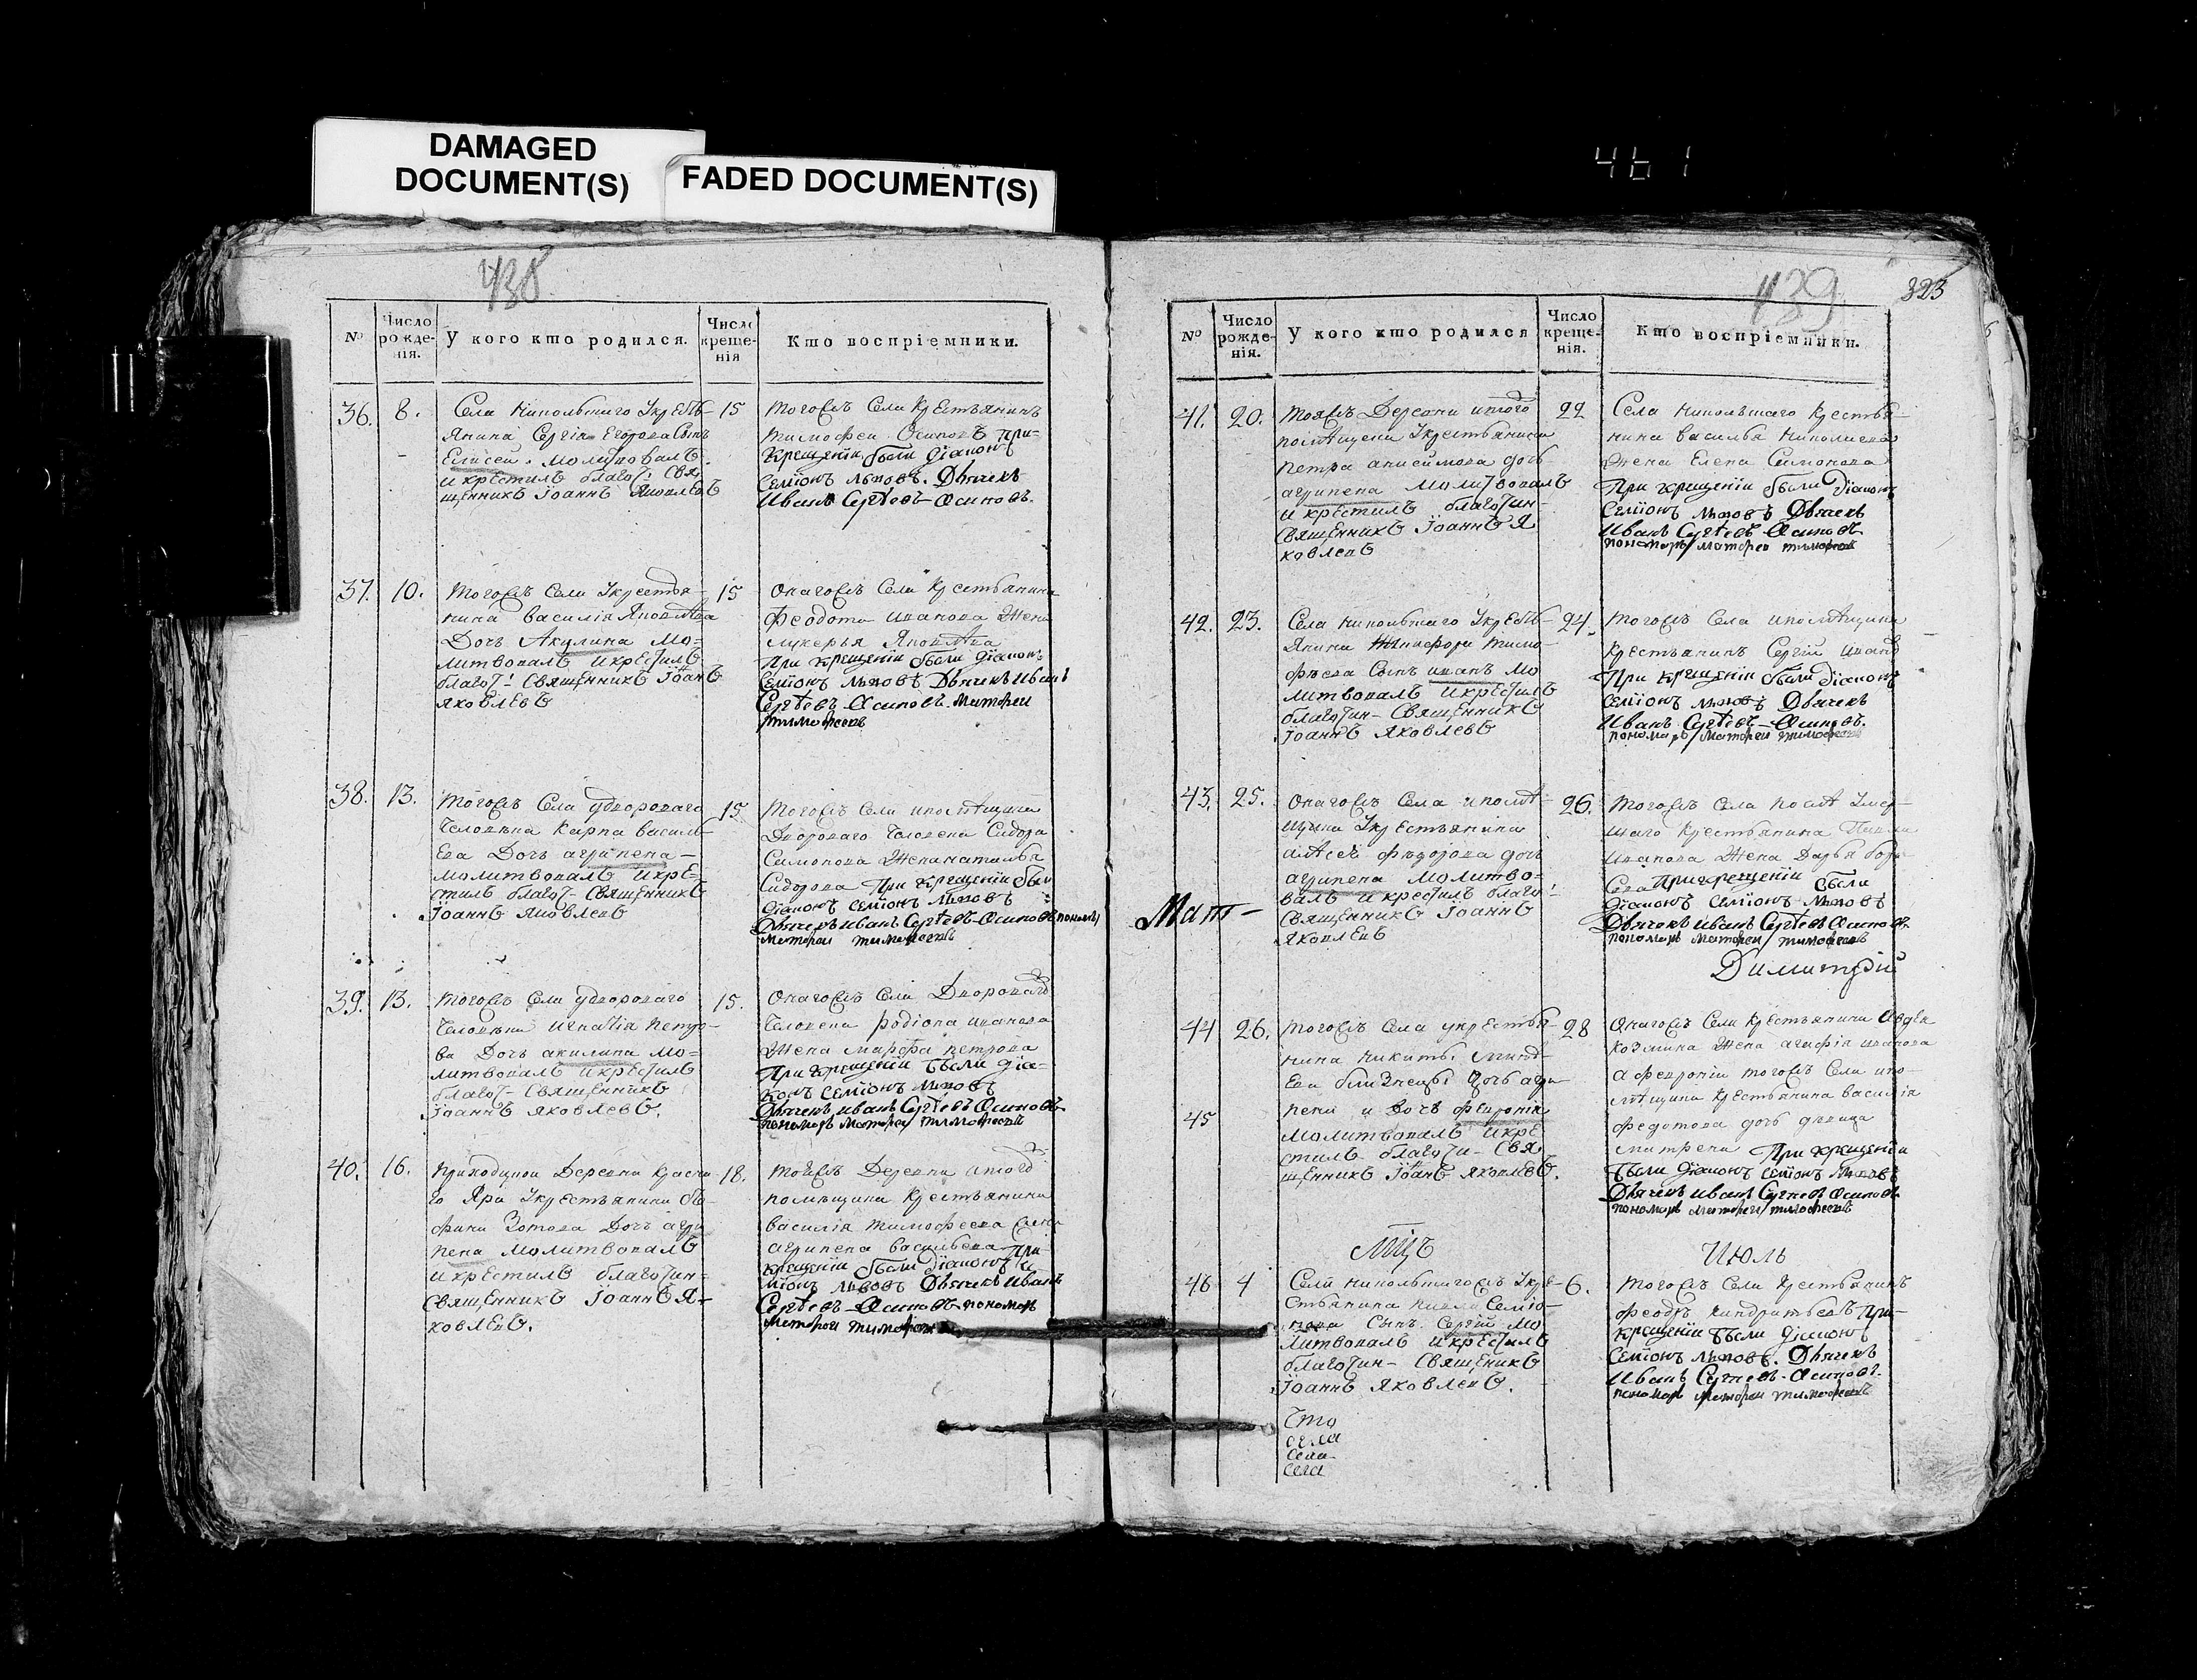 DAMAGED
DOCUMENT(S)
FADED DOCUMENT(S)
461
438
№
Число рожде-нія.
У кого кто родился.
Число креще-нія
Кто воспріемники.
36. 8.
Села Никольшаго Укресть-
янина Сергія Егорова Сынъ
Елисей. Молитвовалъ
и крестилъ благоч. Свя
щенникъ Іоаннъ Яковлевъ
15
Тогожъ Села Крестьянинъ
Тимофеи Осиповъ при-
крещеніи были діаконъ
Семіонъ Львовъ. Дьячекъ
Иванъ Сергѣевъ Осиповъ.
37. 10.
Тогожъ Села Укрестья-
нина Василія Яковлева
Дочь Акулина Мо-
литвовалъ и крестилъ
благоч. Священникъ Іоанъ
Яковлевъ
15
Онагожъ Села Крестьянина
Феодота Иванова Жена
Яковлева
При крещеніи были діаконъ
Семіонъ Львовъ Дьячекъ Иванъ
Сергѣевъ Осиповъ. Матфеи
Тимофеевъ
38. 13.
Тогожъ Села удвороваго
Человѣка Карпа Василь-
ева Дочь агрипена
молитвовалъ и кре-
стилъ благоч- Священникъ
Іоаннъ Яковлевъ
15
Тогожъ Села
Двороваго Человека Сидора
Симонова Жена наталья
Сидорова При крещеніи были
діаконъ Семіонъ Львовъ
Дьячекъ Иванъ Сергѣевъ Осиповъ пономарь
Матфеи Тимофеевъ
39. 13.
Тогожъ Села удвороваго
Человѣка Игнатія Петро-
ва Дочь акилина мо-
литвовалъ и крестилъ
благоч- Священникъ
Іоаннъ Яковлевъ.
15.
Онагожъ Села Двороваго
Человека Родіона Иванова
Жена марфа петрова
При крещеніи были діа-
конъ Семіонъ Львовъ
Дьячекъ Иванъ Сергѣевъ Осиповъ
пономарь Матфеи Тимофеевъ
40. 16.
Приходцкой Деревни Красна-
го Яра Укрестьянина
Зотова Дочь агри
пена молитвовалъ
и крестилъ благочин-
Священникъ Іоаннъ Я-
ковлевъ.
18.
Тойжъ Деревни итогожъ
помѣщика Крестьянина
Василія Тимофеева
агрипена Васильева при
крещеніи были діаконъ Се
міонъ Львовъ Дьячекъ Иванъ
Сергѣевъ Осиповъ пономарь
Матфеи Тимофеевъ
439
323
№
Число рожде-нія.
У кого кто родился
Число креще-нія.
Кто воспріемники.
41. 20.
Тояжъ Деревни итого
помѣщика Укрестьянина
Петра анисимова дочь
агрипена Молитвовалъ
и крестилъ благочин-
Священникъ Іоаннъ Я
ковлевъ
22
Села Никольшаго Крестья-
нина Василья Николаева
Жена Елена Симонова
При крещеніи были діаконъ
Семіонъ Львовъ Дьячекъ
Иванъ Сергѣевъ Осиповъ
пономарь Матфеи Тимофеевъ
42. 23.
Села Никольшаго Укресть-
янина Тимо-
фѣева Сынъ иванъ Мо
литвовалъ и крестилъ
благочин- Священникъ
Іоаннъ Яковлевъ
24.
Тогожъ Села ипомѣщика
Крестьянинъ Сергій Ивановъ
При крещеніи были діаконъ
Семіонъ Львовъ Дьячекъ
Иванъ Сергѣевъ Осиповъ.
пономарь Матфеи Тимофеевъ
43. 25.
Онагожъ Села ипомѣ-
щика Укрестьянина
алѣсѣя Фѣдорова дочь
агрипена Молитво-
валъ и крестилъ благо!
Священникъ Іоаннъ
Яковлевъ
26.
Тогожъ Села послѣ умер-
шаго Крестьянина Павла
Иванова Жена Дарья
При крещеніи были
діаконъ Семіонъ Львовъ
Дьячекъ Иванъ Сергѣевъ Осиповъ
пономарь Матфеи Тимофеевъ
Мат-
Димитрій
44 26.
Тогожъ Села укрестья-
нина Никиты
ева близнецы Дочь агри-
45
пена и Дочь феврониа
Молитвовалъ и кре
стилъ благочи- Свя
щенникъ Іоанъ Яковлевъ.
28
Онагожъ Села Крестьянина Авдея
Козмина Жена агафія Иванова
а февроніи тогожъ Села ипо-
мѣщика Крестьянина Василія
Федотова дочь девица
матрена При крещеніи
были діаконъ Семіонъ Львовъ
Дьячекъ Иванъ Сергеевъ Осиповъ
пономарь Матфеи Тимофеевъ
Мцъ
Июль
46 4
Села Никольшагожъ Укре-
стьянина Семіо-
нова Сынъ Сергій Мо
литвовалъ и крестилъ
благочин- Священикъ
Іоаннъ Яковлевъ.
6.
Тогожъ Села Крестьянинъ
Феодръ Кондратьевъ При-
крещеніи были діаконъ
Семіонъ Львовъ. Дьячекъ
Иванъ Сергеевъ Осиповъ.
пономарь Матфеи Тимофеевъ
Что
села
села
села